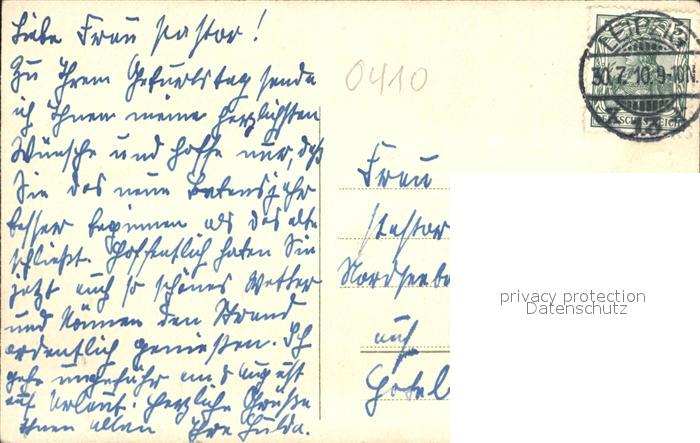 Liebe Frau Pastor!
Zu Ihrem Geburtstag sende
ich Ihnen meine herzlichsten
Wünsche und hoffe nur, daß
Sie das neue Lebensjahr
besser beginnen als das alte
schließt. Hoffentlich haben Sie
jetzt auch so schönes Wetter
und können den Strand
ordentlich genießen. Ich
gehe ungefähr am 8 August
auf Urlaub. Herzliche Grüße
Ihnen allen Ihre Hulda.
0410
LEIPZIG
30.7.10.9-10N.
* 13 *
DEUTSCHES REICH
Frau
Pastor
Nordseeba
auf
Hotel
privacy protection
Datenschutz